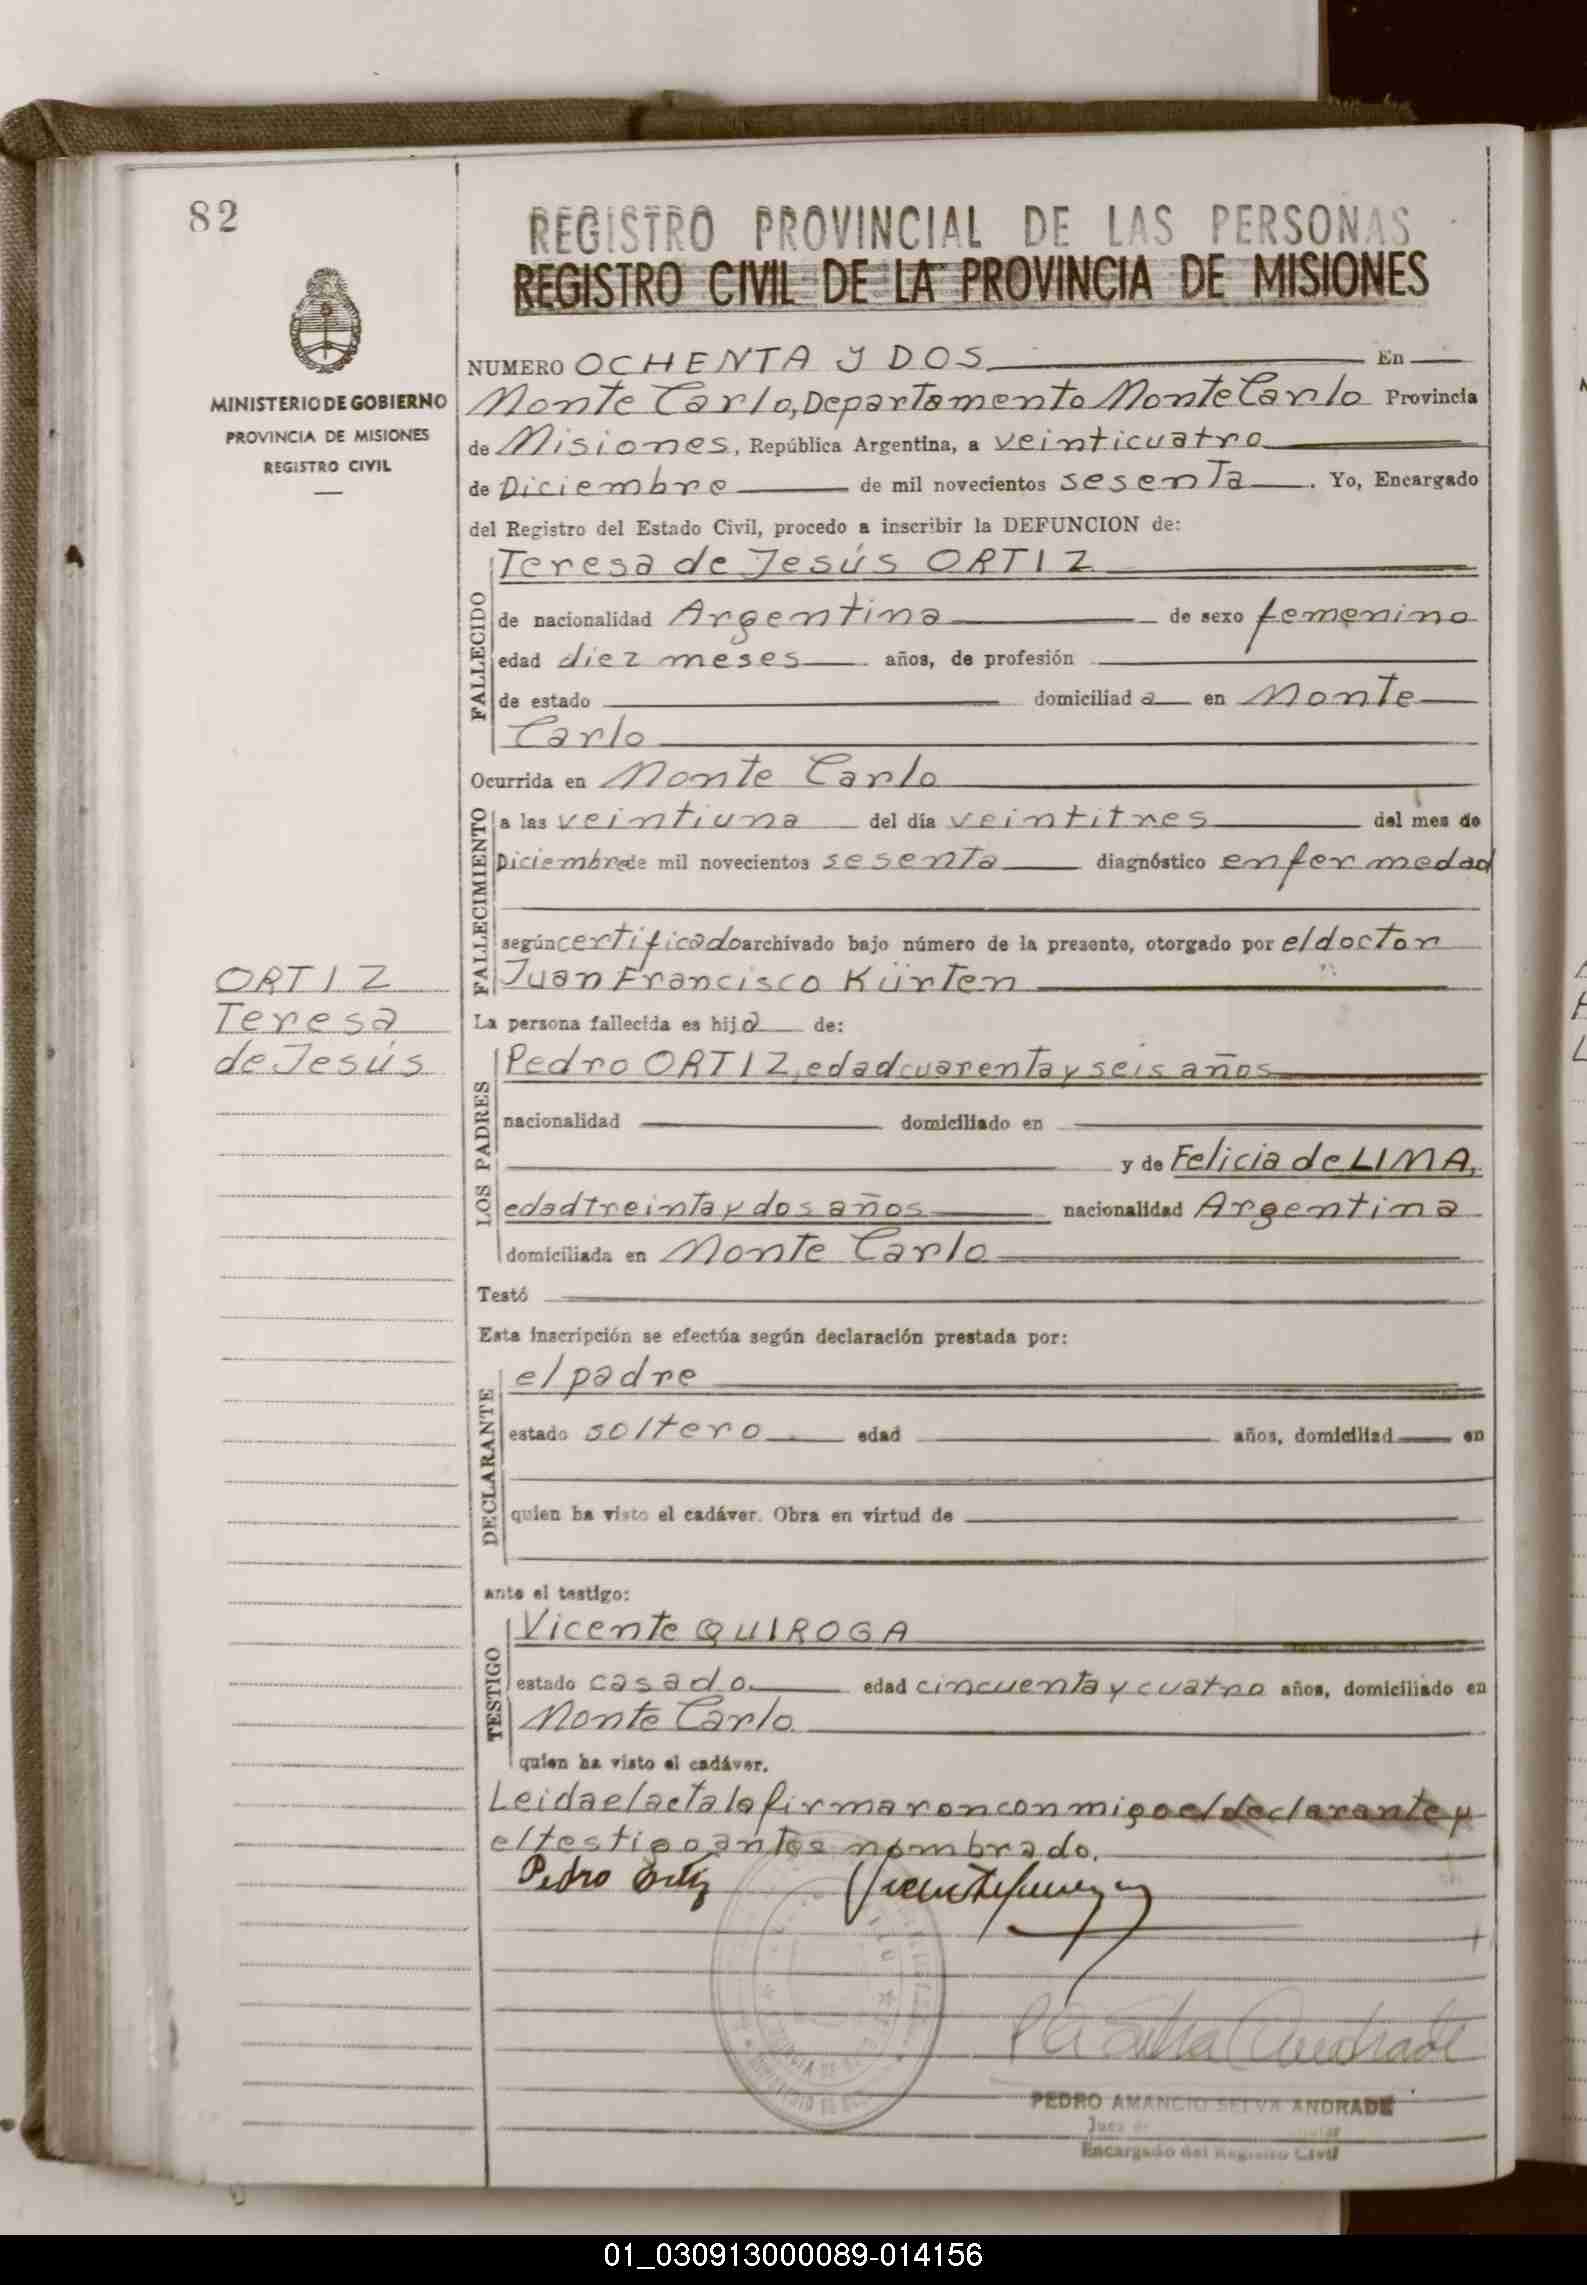 82
REGISTRO PROVINCIAL DE LAS PERSONAS
REGISTRO CIVIL DE LA PROVINCIA DE MISIONES
MINISTERIO DE GOBIERNO
PROVINCIA DE MISIONES
REGISTRO CIVIL
NUMERO OCHENTA Y DOS En
Monte Carlo, Departamento Monte Carlo Provincia
de Misiones, República Argentina, a veinticuatro
de Diciembre de mil novecientos sesenta. Yo, Encargado
del Registro del Estado Civil, procedo a inscribir la DEFUNCION de:
FALLECIDO
Teresa de Jesús ORTIZ
de nacionalidad Argentina de sexo femenino
edad diez meses años, de profesión
de estado domiciliad a en Monte
Carlo
Ocurrida en Monte Carlo
FALLECIMIENTO
a las veintiuna del día veintitres del mes de
Diciembre de mil novecientos sesenta diagnóstico enfermedad
según certificado archivado bajo número de la presente, otorgado por el doctor
Juan Francisco Kürten
ORTIZ
Teresa
de Jesús
La persona fallecida es hija de:
LOS PADRES
Pedro ORTIZ, edad cuarenta y seis años
nacionalidad domiciliado en
y de Felicia de LIMA,
edad treinta y dos años nacionalidad Argentina
domiciliada en Monte Carlo
Testó
Esta inscripción se efectúa según declaración prestada por:
DECLARANTE
el padre
estado soltero edad años, domiciliad en
quien ha visto el cadáver. Obra en virtud de
ante el testigo:
TESTIGO
Vicente QUIROGA
estado casado edad cincuenta y cuatro años, domiciliado en
Monte Carlo
quien ha visto el cadáver.
Leida el acta la firmaron conmigo el declarante y
el testigo antes nombrado.
Pedro Ortiz
PEDRO AMANCIO SELVA ANDRADE
Encargado del Registro Civil
01_030913000089-014156